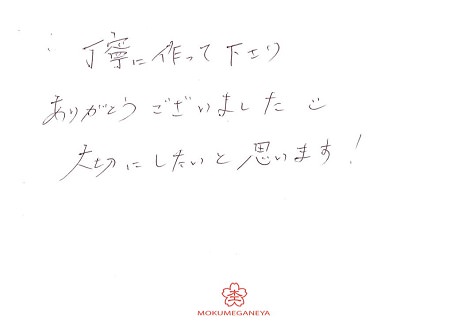 丁寧に作って下さり
ありがとうございました
大切にしたいと思います!
杢
MOKUMEGANEYA